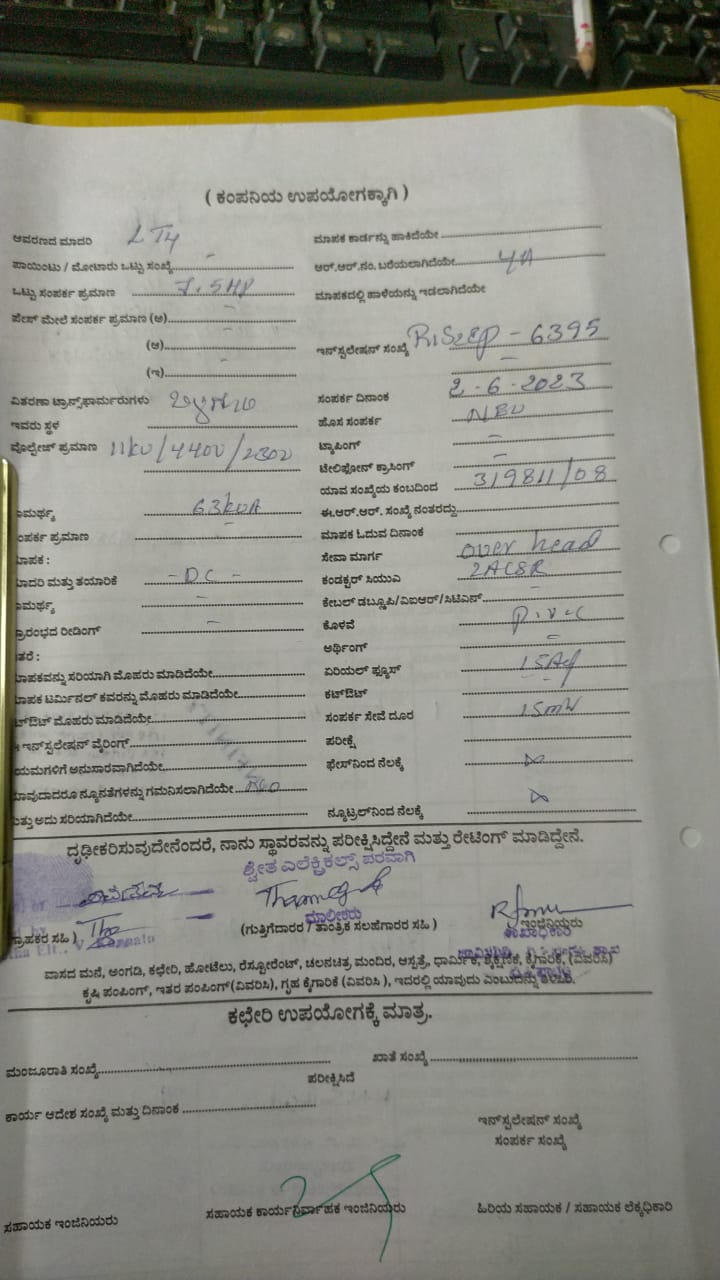 ( ಕಂಪನಿಯ ಉಪಯೋಗಕ್ಕಾಗಿ )
ಆವರಣದ ಮಾದರಿ LT4 ಮಾಪಕ ಕಾರ್ಡನ್ನು ಹಾಕಿದೆಯೇ
ಪಾಯಿಂಟು / ಮೋಟಾರು ಒಟ್ಟು ಸಂಖ್ಯೆ - ಆರ್.ಆರ್.ನಂ. ಬರೆಯಲಾಗಿದೆಯೇ
ಒಟ್ಟು ಸಂಪರ್ಕ ಪ್ರಮಾಣ 7.5HP ಮಾಪಕದಲ್ಲಿ ಹಾಳೆಯನ್ನು ಇಡಲಾಗಿದೆಯೇ
ಪೇಸ್ ಮೇಲೆ ಸಂಪರ್ಕ ಪ್ರಮಾಣ (ಅ) -
(ಆ) - ಇನ್‌ಸ್ಟಲೇಷನ್ ಸಂಖ್ಯೆ - 6395
(ಇ) - -
ವಿತರಣಾ ಟ್ರಾನ್ಸ್‌ಫಾರ್ಮರುಗಳು ಸಂಪರ್ಕ ದಿನಾಂಕ 2-6-2023
ಇವರು ಸ್ಥಳ ಹೊಸ ಸಂಪರ್ಕ
ವೊಲ್ಟೇಜ್ ಪ್ರಮಾಣ 11KV/440V/230V ಟ್ಯಾಪಿಂಗ್ -
ಟೇಲಿಫೋನ್ ಕ್ರಾಸಿಂಗ್ -
ಯಾವ ಸಂಖ್ಯೆಯ ಕಂಬದಿಂದ
ಾಮರ್ಥ್ಯ 63kVA ಈ.ಆರ್.ಆರ್. ಸಂಖ್ಯೆ ನಂತರದ್ದು
ಂಪರ್ಕ ಪ್ರಮಾಣ - ಮಾಪಕ ಓದುವ ದಿನಾಂಕ
ಾಪಕ : ಸೇವಾ ಮಾರ್ಗ over head
ಾದರಿ ಮತ್ತು ತಯಾರಿಕೆ - DC - ಕಂಡಕ್ಟರ್ ಸಿಯುಎ 2ACSR
ಾಮರ್ಥ್ಯ - ಕೇಬಲ್ ಡಬ್ಲೂಪಿ/ವಿಐಆರ್/ಸಿಟಿಎಸ್ -
್ರಾರಂಭದ ರೀಡಿಂಗ್ - ಕೊಳವೆ p.v.c
ತರೆ : ಅರ್ಥಿಂಗ್ -
ಾಪಕವನ್ನು ಸರಿಯಾಗಿ ಮೊಹರು ಮಾಡಿದೆಯೇ ಏರಿಯಲ್ ಫ್ಯೂಸ್
ಾಪಕ ಟರ್ಮಿನಲ್ ಕವರನ್ನು ಮೊಹರು ಮಾಡಿದೆಯೇ ಕಟ್‌ಔಟ್ - -
ಟ್‌ಔಟ್ ಮೊಹರು ಮಾಡಿದೆಯೇ ಸಂಪರ್ಕ ಸೇವೆ ದೂರ
ಇನ್‌ಸ್ಟಲೇಷನ್ ವೈರಿಂಗ್ ಪರೀಕ್ಷೆ
ಯಮಗಳಿಗೆ ಅನುಸಾರವಾಗಿದೆಯೇ ಫೇಸ್‌ನಿಂದ ನೆಲಕ್ಕೆ
ಾವುದಾದರೂ ನ್ಯೂನತೆಗಳನ್ನು ಗಮನಿಸಲಾಗಿದೆಯೇ
ತ್ತು ಅದು ಸರಿಯಾಗಿದೆಯೇ ನ್ಯೂಟ್ರಲ್‌ನಿಂದ ನೆಲಕ್ಕೆ
ದೃಢೀಕರಿಸುವುದೇನೆಂದರೆ, ನಾನು ಸ್ಥಾವರವನ್ನು ಪರೀಕ್ಷಿಸಿದ್ದೇನೆ ಮತ್ತು ರೇಟಿಂಗ್ ಮಾಡಿದ್ದೇನೆ.
ಶ್ವೇತ ಎಲೆಕ್ಟ್ರಿಕಲ್ಸ್ ಪರವಾಗಿ
ಮಾಲೀಕರು
್ರಾಹಕರ ಸಹಿ ) (ಗುತ್ತಿಗೆದಾರರ / ತಾಂತ್ರಿಕ ಸಲಹೆಗಾರರ ಸಹಿ ) ಇಂಜಿನಿಯರು
ವಾಸದ ಮನೆ, ಅಂಗಡಿ, ಕಛೇರಿ, ಹೋಟೆಲು, ರೆಸ್ಟೋರೆಂಟ್, ಚಲನಚಿತ್ರ ಮಂದಿರ, ಆಸ್ಪತ್ರೆ, ಧಾರ್ಮಿಕ, ಶೈಕ್ಷಣಿಕ, ಕೈಗಾರಿಕೆ, (ವಿವರಿಸಿ)
ಕೃಷಿ ಪಂಪಿಂಗ್, ಇತರ ಪಂಪಿಂಗ್(ವಿವರಿಸಿ), ಗೃಹ ಕೈಗಾರಿಕೆ (ವಿವರಿಸಿ ), ಇದರಲ್ಲಿ ಯಾವುದು ಎಂಬುದನ್ನು ತಿಳಿಸಿರಿ.
ಕಛೇರಿ ಉಪಯೋಗಕ್ಕೆ ಮಾತ್ರ.
ಮಂಜೂರಾತಿ ಸಂಖ್ಯೆ ಖಾತೆ ಸಂಖ್ಯೆ
ಪರೀಕ್ಷಿಸಿದೆ
ಕಾರ್ಯ ಆದೇಶ ಸಂಖ್ಯೆ ಮತ್ತು ದಿನಾಂಕ
ಇನ್‌ಸ್ಟಲೇಷನ್ ಸಂಖ್ಯೆ
ಸಂಪರ್ಕ ಸಂಖ್ಯೆ
ಸಹಾಯಕ ಇಂಜಿನಿಯರು ಸಹಾಯಕ ಕಾರ್ಯನಿರ್ವಾಹಕ ಇಂಜಿನಿಯರು ಹಿರಿಯ ಸಹಾಯಕ / ಸಹಾಯಕ ಲೆಕ್ಕಧಿಕಾರಿ